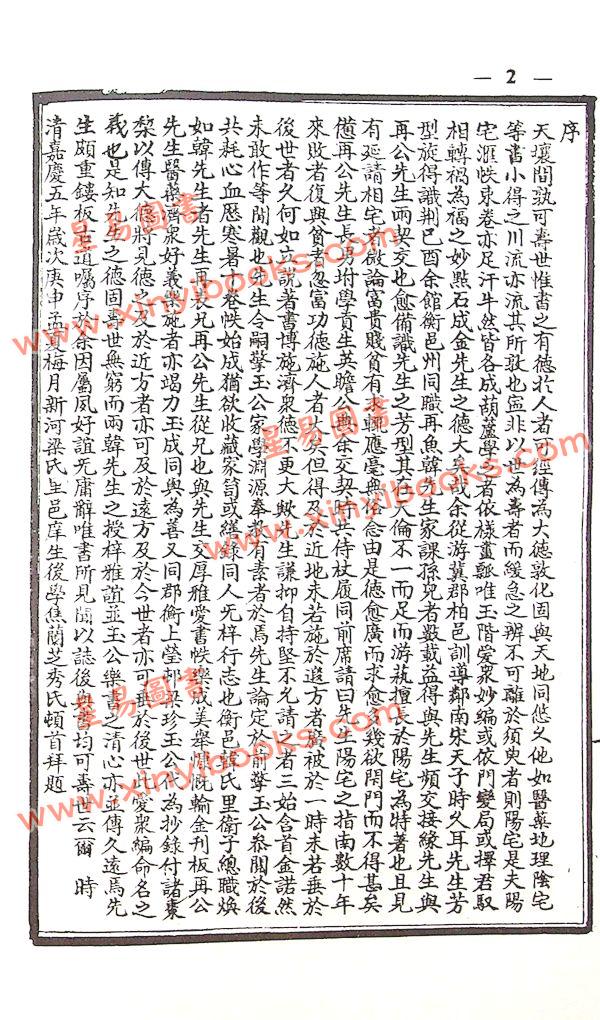 — 2 —
序
天壤間孰可壽世惟書之有德於人者可經傳為大德敦化固與天地同悠久他如醫藥地理陰宅
等書小得之川流亦流其所敦也寍非以世為壽者而緩急之辨不可離於須臾者則陽宅是夫陽
宅滙帙束卷亦足汗牛然皆各成葫蘆學之者依樣畫瓢唯玉階愛衆妙編或依門變局或擇君馭
相轉禍為福之妙點石成金先生之德大矣哉余從游冀郡柏邑訓導鄰南宋天子時久耳先生芳
型旋得識荆已酉余館衡邑州同職再魚韓先生家課孫兒者數載益得與先生頻交接緣先生與
再公先生兩契交也愈備識先生之芳型其在大倫不一而足而游秇擅長於陽宅為特著也且見
有延請相宅者微論富貴賤貧有求輒應毫無倦念由是德愈廣而求愈多幾欲閉門而不得甚矣
憊再公先生長男坿學貢生英瞻公與余交契共侍杖履同前席請曰先生陽宅之指南數十年
來敗者復興貧者忽富功德施人者大矣但得及於近地未若施於遐方者驚被於一時未若垂於
後世者久何如立說著書博施濟衆德不更大歟先生謙抑自持堅不允請之者三始含首金諾然
未敢作等閒觀也先生令嗣擎玉公家學淵源奉教有素者於焉先生論定於前擎玉公叅閱於後
共耗心血歷寒暑 卷帙始成猶欲收藏家笥或繕錄同人旡梓行志也衡邑韓氏里衛子總職煥
如韓先生者先生再從兄再公先生從兄也與先生交厚雅愛書帙樂成美舉慷慨輸金刋板再公
先生醫藥濟衆好義樂施者亦竭力玉成同與為善又同郡衡上瑩邨 珍玉公代為抄録付諸棗
梨以傳大德將見德之及於近方者亦可及於遠方及於今世者亦可 於後世此愛衆編命名之
義也是知先生之德固壽世無窮而兩韓先生之授梓雅誼並玉公樂書之清心亦並傳久遠焉先
生頗重鏤板古道囑序於余因屬夙好誼旡庸辭唯書所見聞以誌後與書均可壽世云爾　時
清嘉慶五年歲次庚申孟夏梅月新河梁氏里邑庠生後學焦蘭芝秀氏頓首拜題
星易圖書
www.xinyibooks.com
星易圖書
www.xinyibooks.com
星易圖書
www.xinyibooks.com